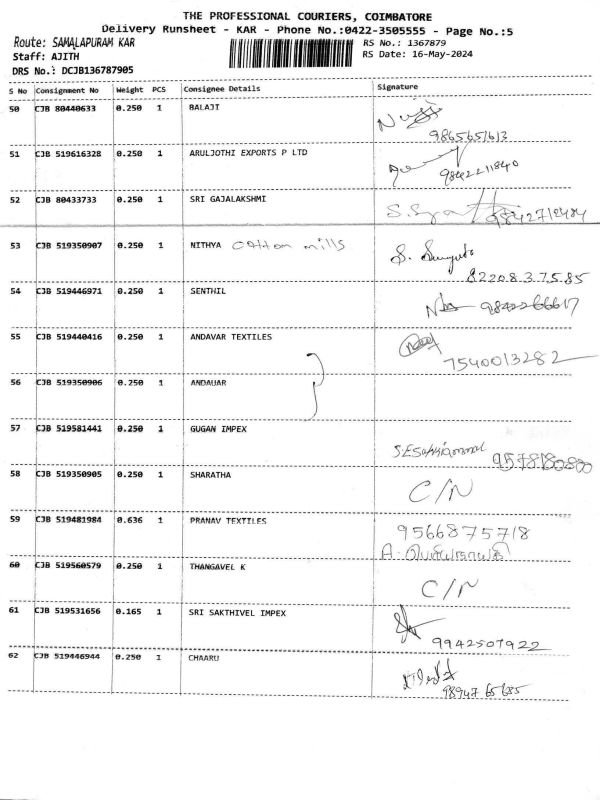 THE PROFESSIONAL COURIERS, COIMBATORE
Delivery Runsheet - KAR - Phone No.:0422-3505555 - Page No.:5
Route: SAMALAPURAM KAR
RS No.: 1367879
Staff: AJITH
RS Date: 16-May-2024
DRS No.: DCJB136787905
S No Consignment No Weight PCS Consignee Details Signature
50 CJB 80440633 0.250 1 BALAJI
9865651613
51 CJB 519616328 0.250 1 ARULJOTHI EXPORTS P LTD
9842211840
52 CJB 80433733 0.250 1 SRI GAJALAKSHMI
9842712484
53 CJB 519350907 0.250 1 NITHYA Cotton mills
8220837585
54 CJB 519446971 0.250 1 SENTHIL
9842266617
55 CJB 519440416 0.250 1 ANDAVAR TEXTILES
7540013282
56 CJB 519350906 0.250 1 ANDAUAR
57 CJB 519581441 0.250 1 GUGAN IMPEX
9578180800
58 CJB 519350905 0.250 1 SHARATHA
C/N
59 CJB 519481984 0.636 1 PRANAV TEXTILES
9566875718
60 CJB 519560579 0.250 1 THANGAVEL K
C/N
61 CJB 519531656 0.165 1 SRI SAKTHIVEL IMPEX
9942507922
62 CJB 519446944 0.250 1 CHAARU
9894765685